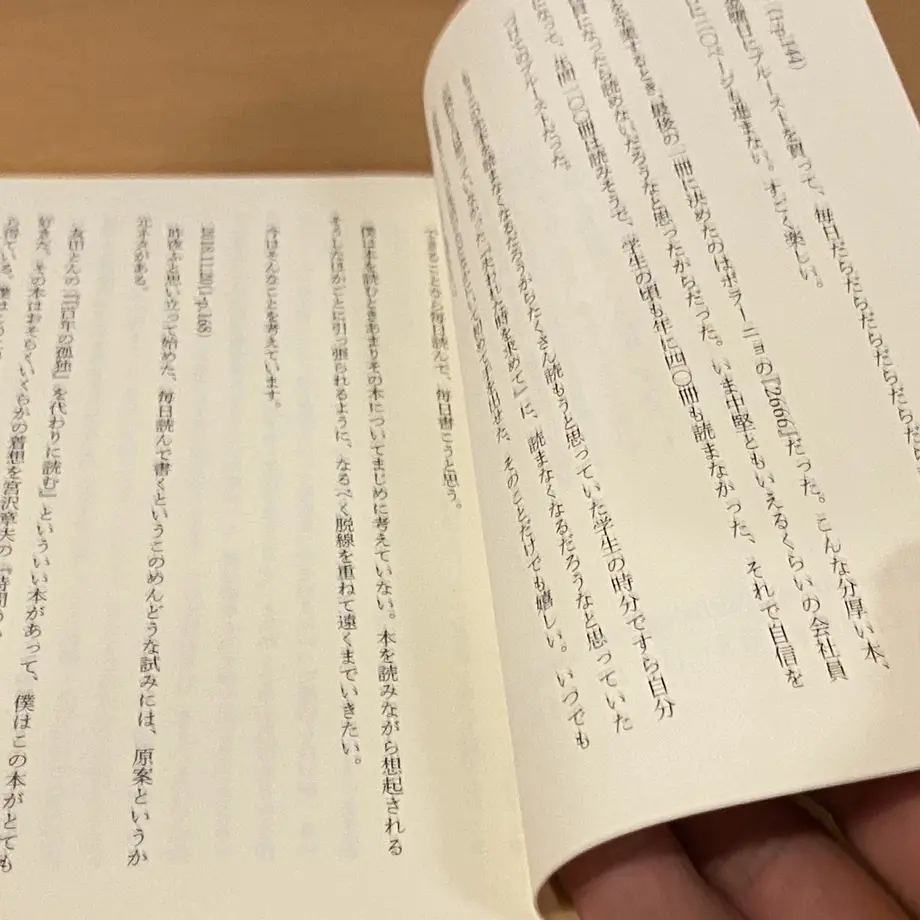 (ロヂ p.144)
金曜日にプルーストを買って、毎日だらだらだらだらだら
と二〇ページも進まない。すごく楽しい。
を卒業するとき、最後の一冊に決めたのはボラーニョの『2666』だった。こんな分厚い本、
員になったら読めないだろうなと思ったからだった。いま中堅ともいえるくらいの会社員
になって、年間一〇〇冊は読みそうで、学生の頃も年に四〇冊も読まなかった、それで自信を
のプルーストだった。
を読まなくなるだろうからたくさん読もうと思っていた学生の時分ですら自分
『失われた時を求めて』に、読まなくなるだろうなと思っていた
手を出せた、そのことだけでも嬉しい。いつでも
できることなら毎日読んで、毎日書こうと思う。
僕は本を読むときあまりその本についてまじめに考えていない。本を読みながら想起される
そうしたほかごとに引っ張られるように、なるべく脱線を重ねて遠くまでいきたい。
今はそんなことを考えています。
2018.11.20(1-p.168)
昨夜ふと思い立って始めた、毎日読んで書くというこのめんどうな試みには、原案というか
元ネタがある。
友田とんの『『百年の孤独』を代わりに読む』といういい本があって、僕はこの本がとても
好きだ。その本はおそらくいくらかの着想を宮沢章夫の『時間
ら得ている。僕は